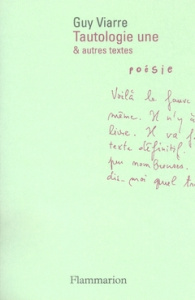 Guy Viarre
Tautologie une
& autres textes
poésie
Voilà le
même. Il n'y
livre. Il va
texte définitif.
peu nombreuses.
dis-moi quel
Flammarion